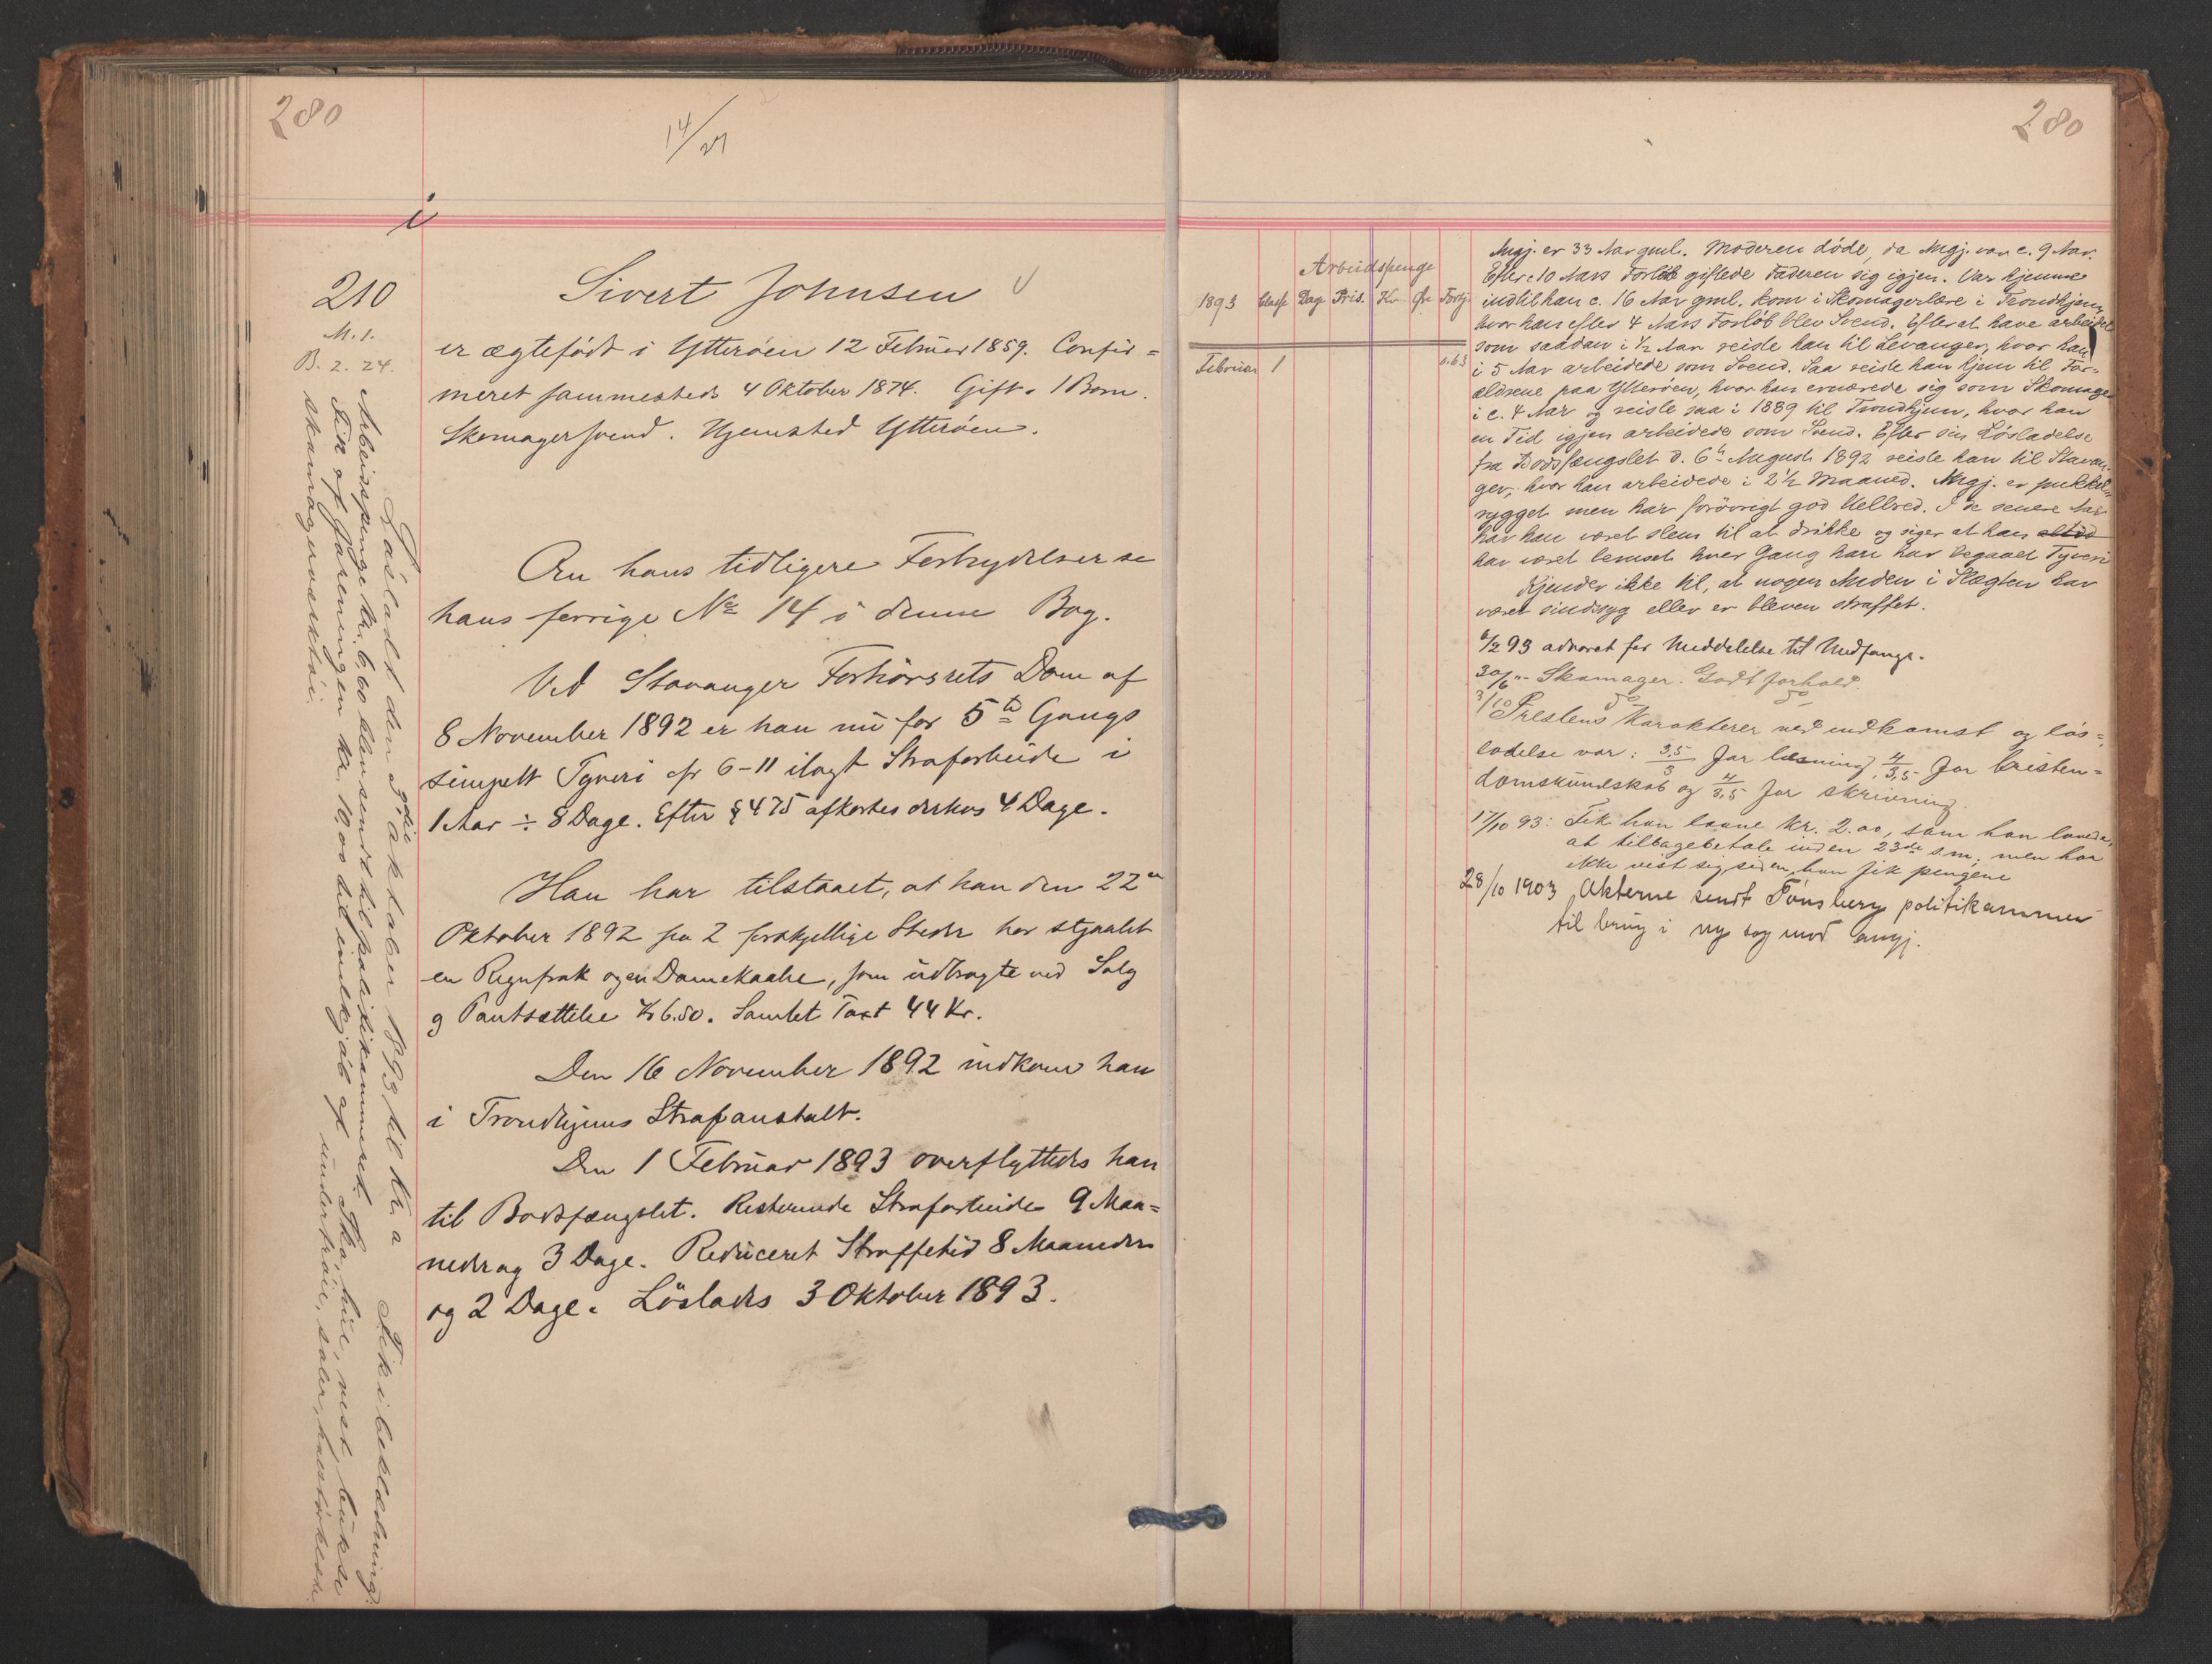 280
14/21
i
210
M. 1.
B. 2. 24.
Sivert Johnsen
er ægtefödt i Ytteröen 12 Februar 1859. Confir=
meret sammesteds 4 Oktober 1874. Gift. 1 Barn.
Skomagersvend. Hjemsted Ytteröen.
Om hans tidligere Forbrydelser se
hans forrige No 14 i denne Bog.
Ved Stavanger Forhörsrets Dom af
8 November 1892 er han nu for 5te Gangs
simpelt Tyveri cfr 6-11 ilagt Strafarbeide i
1 Aar ÷ 8 Dage. Efter § 475 afkortes derhos 4 Dage.
Han har tilstaaet, at han den 22de
Oktober 1892 fra 2 forskjellige Steder har stjaalet
en Regnfrak og en Damekaabe, som udbragte ved Salg
og Pantsættelse Kr 6.50. Samlet Taxt 44 Kr.
Den 16 November 1892 indkom han
i Trondhjems Strafanstalt.
Den 1 Februar 1893 overflyttedes han
til Bodsfængslet. Resterende Strafarbeide 9 Maa=
neder og 3 Dage. Reduceret Straffetid 8 Maaneder
og 2 Dage. Löslades 3 Oktober 1893.
Lösladt den 3die Oktober 1893 til Kr.a Fik i beklædning:
Arbeidspenge kr. 6.60 blev sendt til politikammeret. Sko, hue, vest, bukse
Fik af foreningen kr. 10,00 til indkjöb af undertröie, saaler,
skomagerværktöi.
280
Arbeidspenge
1893 Classe Dag Pris. Kr Øre Fortj.
Februar 1 0.63
Angj. er 33 Aar gml. Moderen döde, da Angj. var c. 9 Aar.
Efter 10 Aars Forlöb giftede Faderen sig igjen. Var hjemme
indtil han c. 16 Aar gml. kom i Skomagerlære i Trondhjem,
hvor han efter 4 Aars Forlöb blev Svend. Efter at have arbeidet
som saadan i 1/2 Aar reiste han til Levanger, hvor han
i 5 Aar arbeidede som Svend. Saa reiste han hjem til For=
ældrene paa Ytteröen, hvor han ernærede sig som Skomager
i c. 4 Aar og reiste saa i 1889 til Trondhjem, hvor han
en Tid igjen arbeidede som Svend. Efter sin Lösladelse
fra Bodsfængslet d. 6te August 1892 reiste han til Stavan=
ger, hvor han arbeidede i 2 1/2 Maaned. Angj. er pukkel=
rygget men har forövrigt god Helbred. I de senere Aar
har han været slem til at drikke og siger at han altid
har været beruset hver Gang han har begaaet Tyveri
Kjender ikke til, at nogen Anden i Slægten har
været sindssyg eller er bleven straffet.
6/2 93 advaret for Meddelelse til Medfange.
30/6 "- Skomager. Godt forhold.
3/10 do do
Prestens Karakterer ved indkomst og lös=
ladelse var: 3,5/3 for læsning, 4/3,5 for kristen=
domskundskab og 4/3,5 for skrivning.
17/10 93: Fik han laane kr. 2.00, som han lovede,
at tilbagebetale inden 23de s.m; men har
ikke vist sig siden han fik pengene
28/10 1903 Akterne sendt Tönsberg politikammer
til brug i ny sag mod angj.